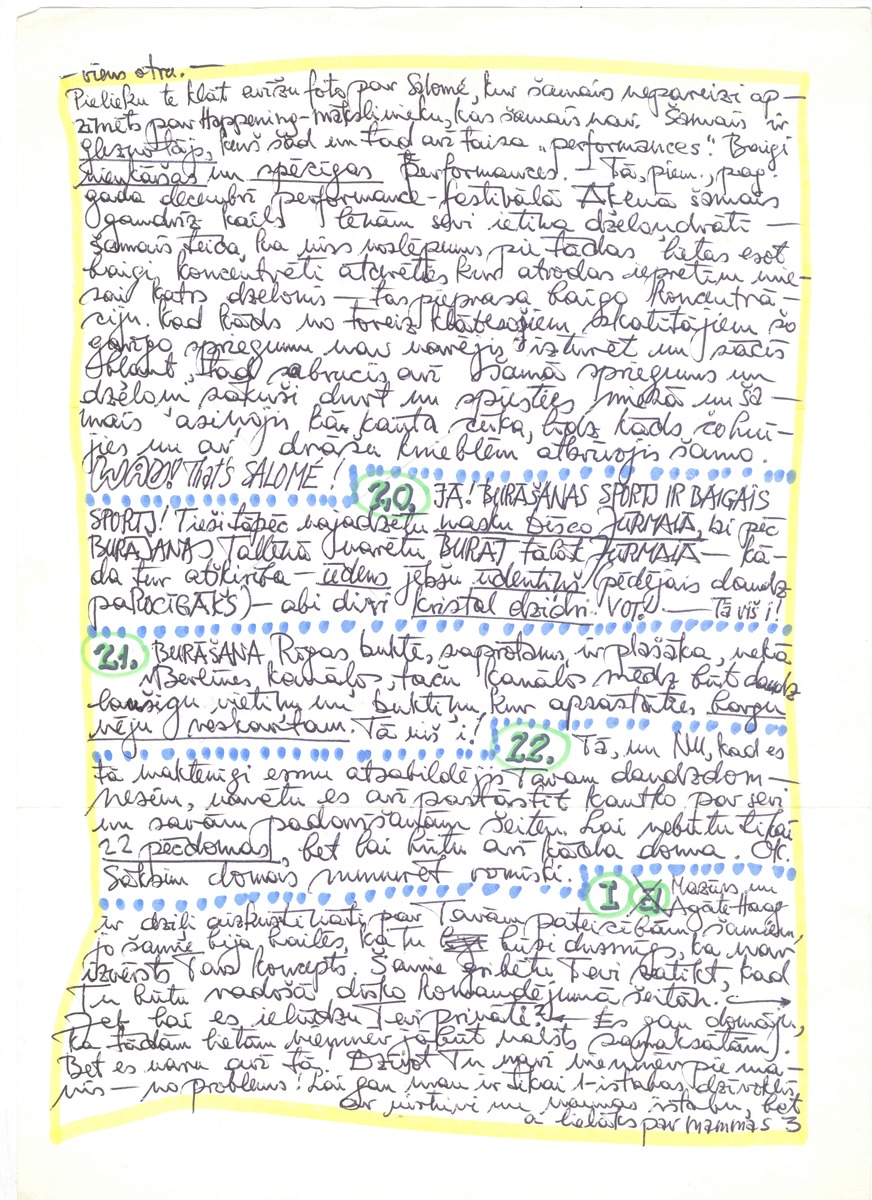 — viens otra. —
Pielieku te klāt avīžu foto par Salomé, kur šamais nepareizi ap-
zīmēts par Happening-mākslinieku, kas šamais nav. Šamais ir
gleznotājs, kurš šad un tad arī taisa „performances". Baigi
vienkāšas un spēcīgas Performances. — Tā, piem., pag.
gada decembrī performance-festivālā Ākenā šamais
gandrīz kails lēnām sevi ietina dzeloņdrātī —
šamais teica, ka viss noslēpums pie tādas lietas esot
baigi koncentrēti atcerēties kur atrodas iepretim mie-
sai katrs dzelonis — tas pieprasa baigo koncentrā-
ciju. Kad kāds no toreiz klātesošiem skatītājiem šo
garīgo spriegumu nav varējis izturēt un sācis
blaut, tad sabrucis arī šamā spriegums un
dzeloņi sākuši durt un spiesties miesā un ša-
mais asiņojis kā kauta cūka, līdz kāds
un ar drāšu knieblēm atbrīvojis šamo.
That's SALOMÉ!
20. JĀ! BURĀŠANAS SPORTS IR BAIGAIS
SPORTS! Tieši tāpēc vajadzētu Disco JŪRMALĀ, bi pēc
BURĀŠANAS Tallinā varētu BURĀT tālāk JŪRMALĀ — kā-
da tur atšķirība — ūdens jebšu ūdentiņš (pēdējais daudz
paROCĪGĀKS) — abi divi kristal dzidri. VOT! — Tā viš i!
21. BURĀŠANA Rīgas buktē, saprotams, ir plašāka, nekā
Berlīnes kanālos, taču kanālos mēdz būt daudz
laušīgu vietiņu un buktiņu, kur apstāsties
vēju. Tā viš i!
22. Tā, un NU, kad es
tā naktenīgi esmu atsabildējis Tavam daudzdom-
nesēm, varētu es arī pastāstīt kautko par sevi
un savām padarīšanām šeiten. Lai nebūtu tikai
22 pēcdomas, bet lai būtu arī kāda doma. OK.
Sāksim domais numurēt romiski.
I Mazais un
Agate Haag
ir dziļi aizkustināti par Tavām pateicībām šamiem,
jo šamie bija bailēs, ka tu būsi dusmīgs, ka nav
izvērsts Tavs koncepts. Šamie gribētu Tevi satikt, kad
Tu būtu radošā disko komandējumā šeitan.
Jeb lai es ielūdzu Tevi privāti? — Es gan domāju,
ka tādām lietām vienmēr jābūt valsts samaksātām.
Bet es varu arī tā. Dzīvot Tu vari vienmēr pie ma-
nis — no problems! Lai gan man ir tikai 1-istabas dzīvoklis
ar virtuvi un vannas istabu, bet
lielāks par mammas 3